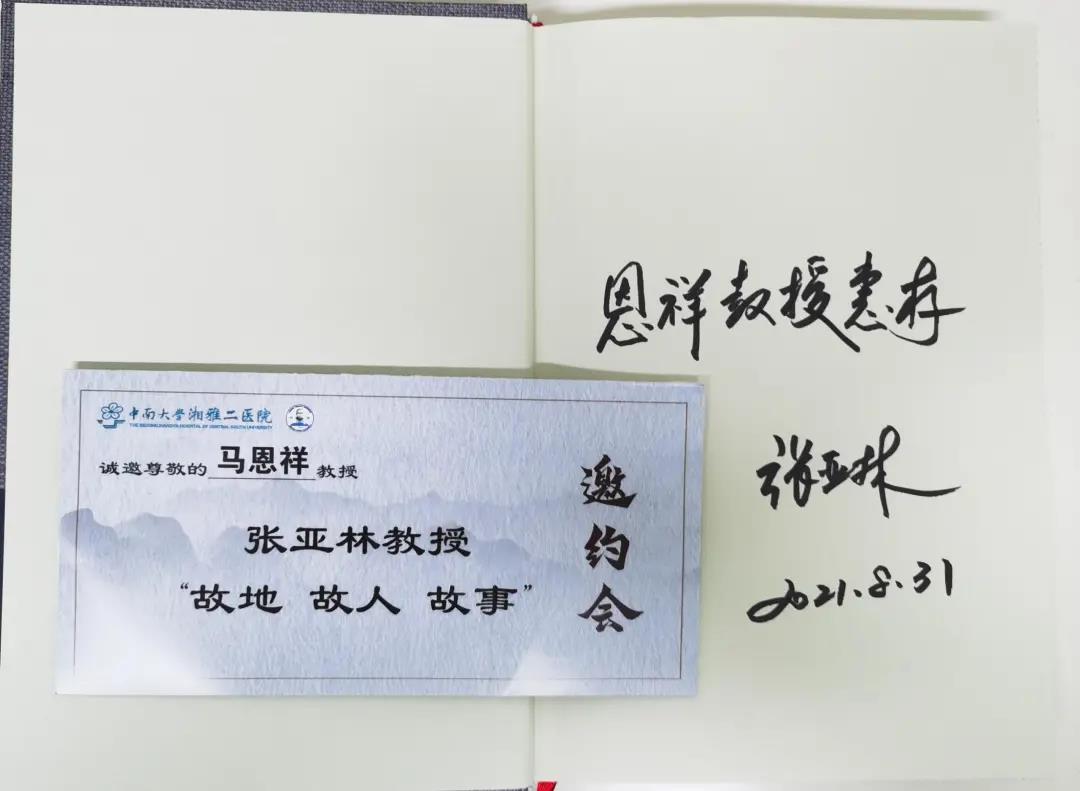 中南大学湘雅二医院
THE SECOND XIANGYA HOSPITAL OF CENTRAL SOUTH UNIVERSITY
诚邀尊敬的 马恩祥 教授
张亚林教授
“故地 故人 故事”
邀约会
恩祥教授惠存
张亚林
2021.8.31